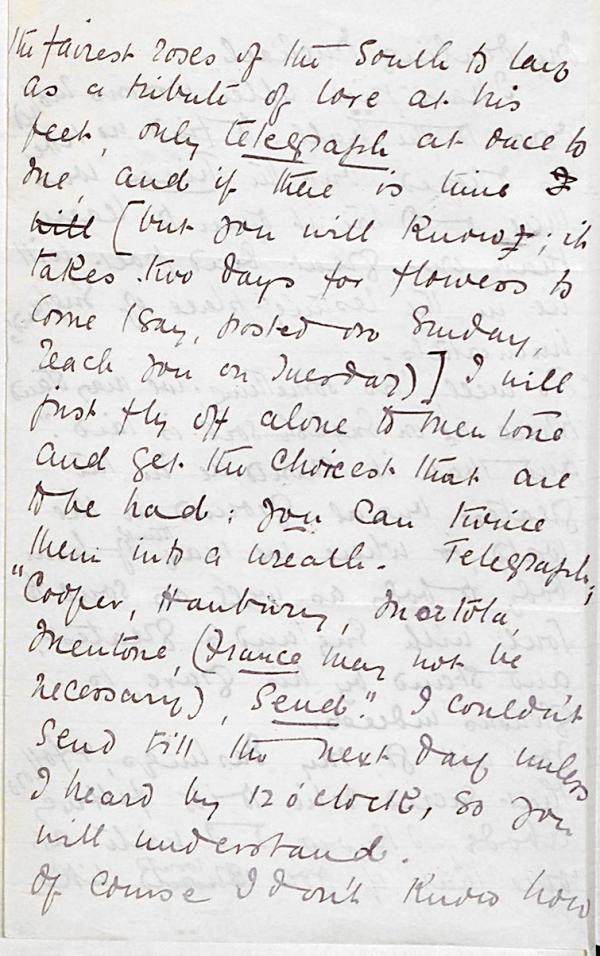 the fairest roses of the South to lay
as a tribute of love at his
feet, only telegraph at once to
me, and if there is time I
will [but you will know; it
takes two days for flowers to
come (say, posted on Sunday,
reach you on Tuesday)] I will
just fly off alone to Mentone
and get the choicest that are
to be had; you can twine
them into a wreath. Telegraph;
"Cooper, Hanbury, Mortola,
Mentone, (France may not be
necessary), Send." I couldn't
send till the next day unless
I heard by 12 o'clock, so you
will understand.
Of course I don't know how